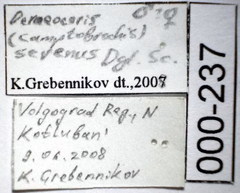 Deraeocoris ♂+♀
(camptobrochis)
serenus Dgl. Sc.
K.Grebennikov dt., 2007
Volgograd Reg., N
Kotluban'
9.06.2008
K. Grebennikov
000-237